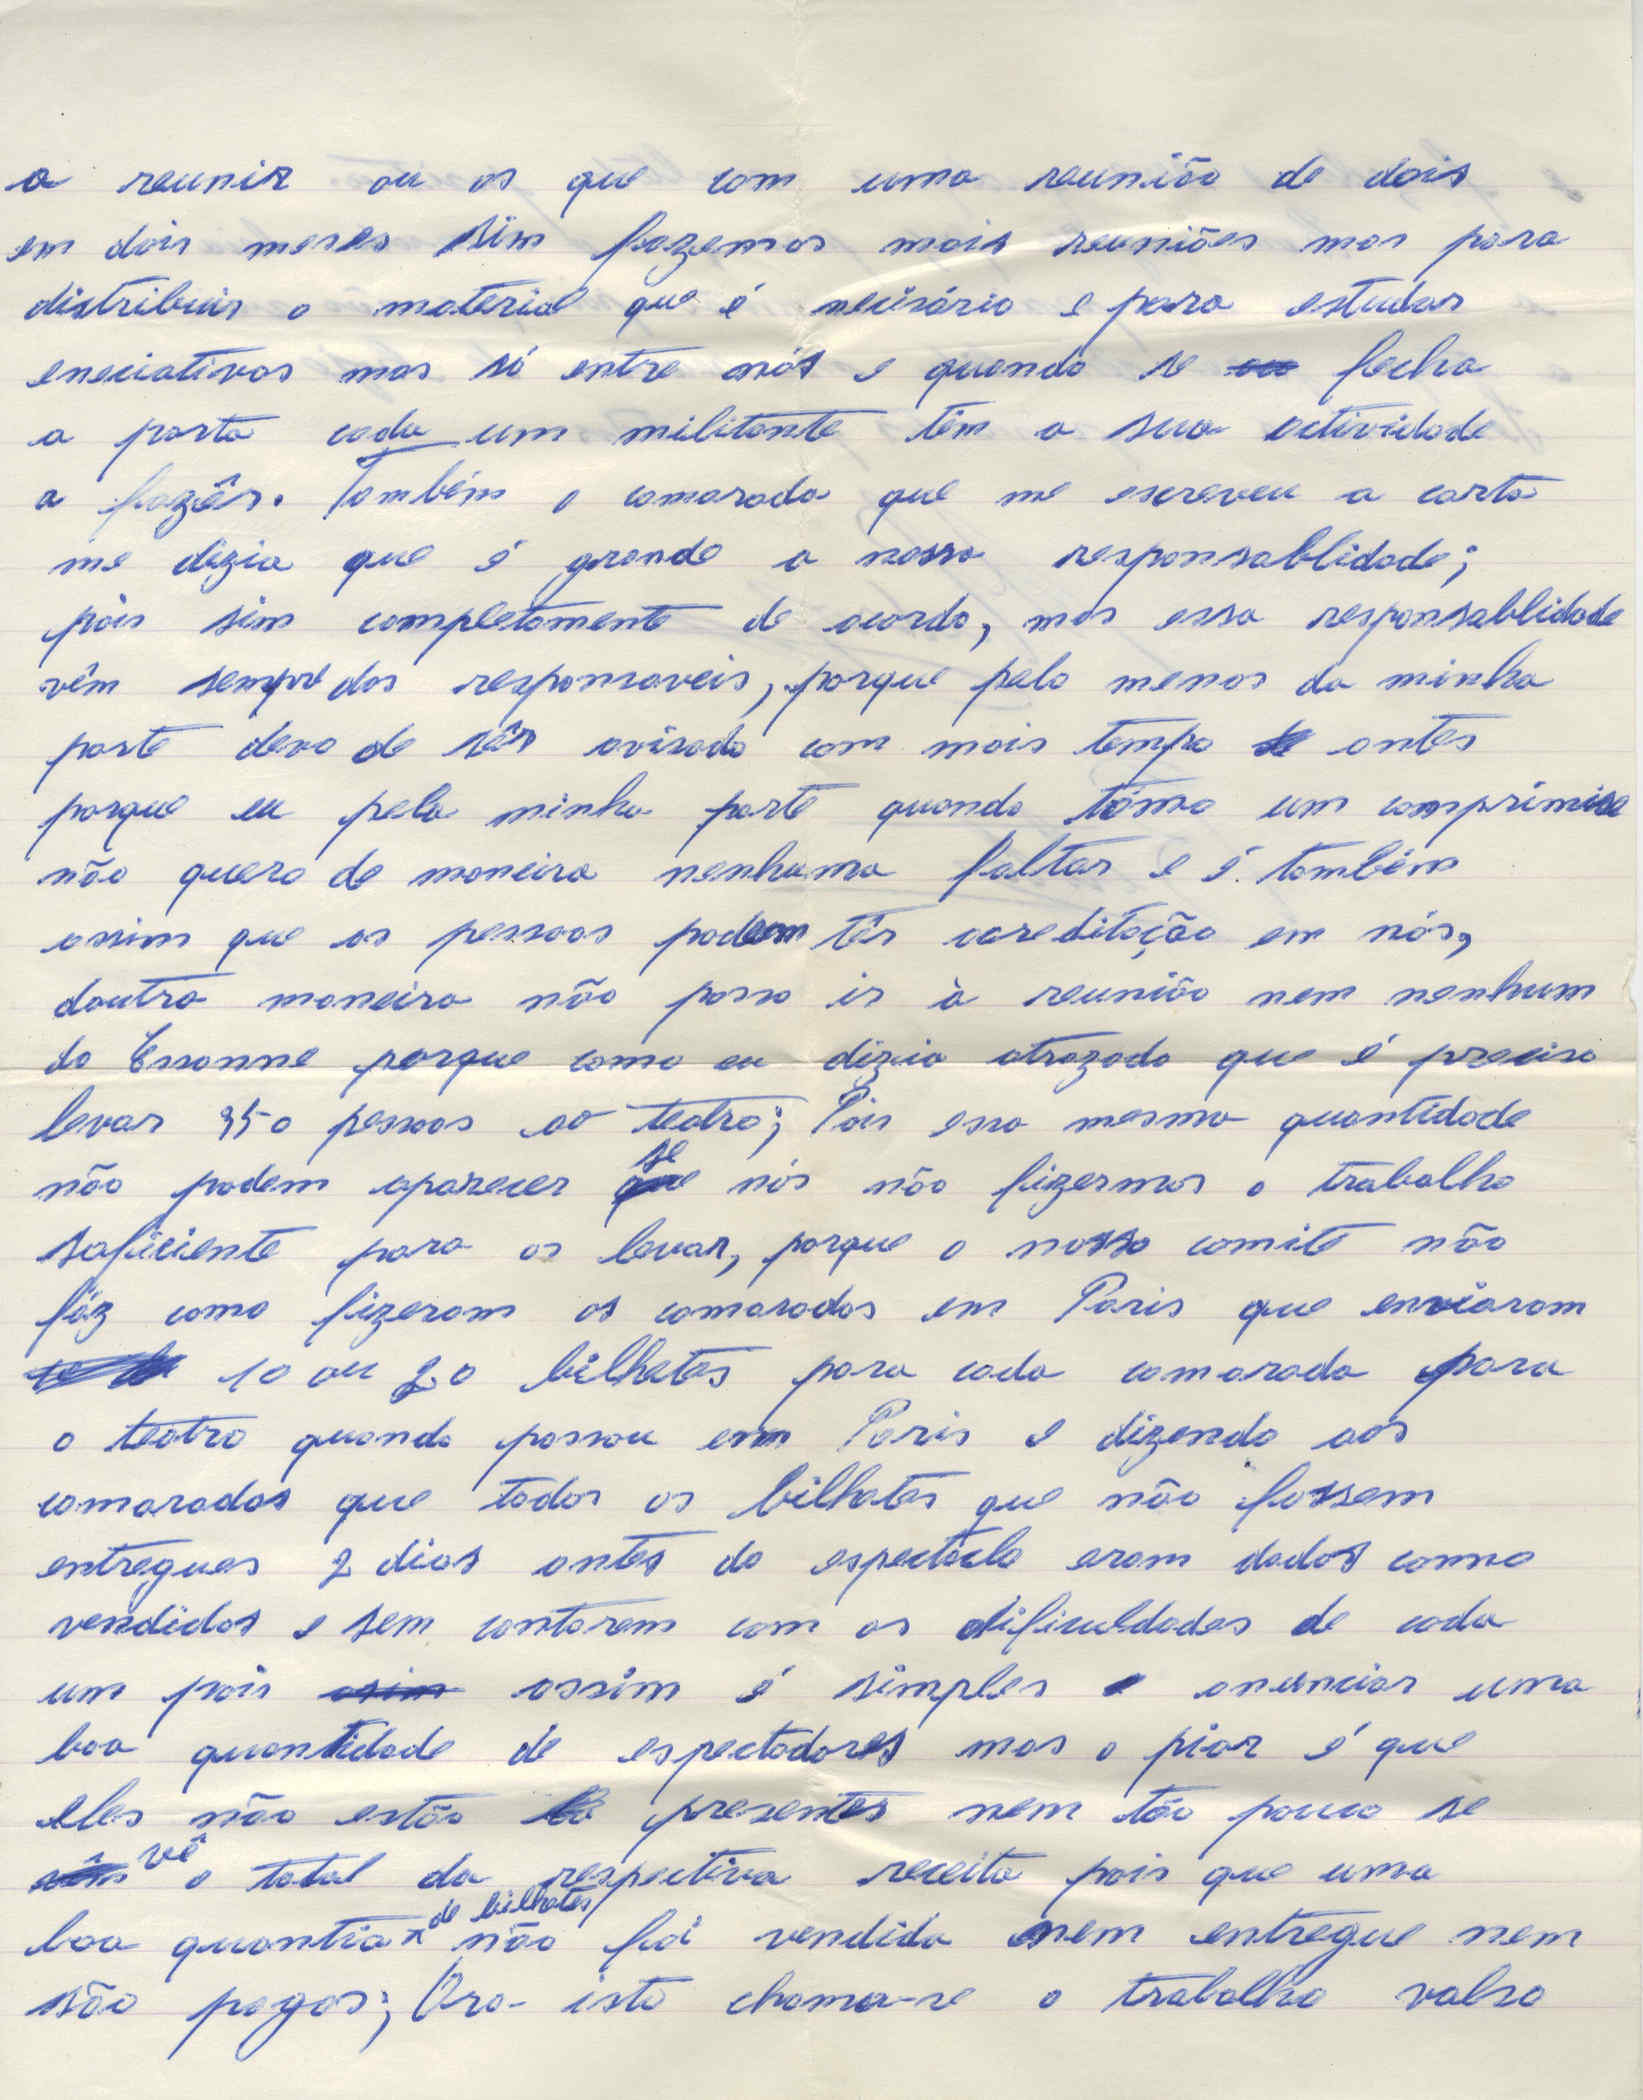 a reunir ou os que com uma reunião de dois
em dois meses sim fazemos mais reuniões mas para
distribuir o material que é necisário e para estudar
eneciativas mas só entre nós e quando se fecha
a porta cada um militante têm a sua actividade
a fazêr. Também o camarada que me escreveu a carta
me dizia que é grande a nossa responsablidade;
pois sim completamente de acordo, mas essa responsablidade
vêm sempre dos responsaveis, porque pelo menos da minha
parte devo de sêr avisado com mais tempo antes
porque eu pela minha parte quando tómo um comprimisse
não quero de maneira nenhuma faltar e é tambêm
assim que as pessoas podem têr acreditação em nós,
doutra maneira não posso ir à reunião nem nenhum
do Essonne porque como eu dizia atrazado que é preciso
levar 350 pessoas ao teatro; Pois essa mesma quantidade
não podem aparecer se nós não fizermos o trabalho
saficiente para os levar, porque o nosso comité não
fáz como fizeram os camaradas em Paris que enviaram
10 ou 20 bilhetes para cada camarada para
o teatro quando passou em Paris e dizendo aos
camaradas que todos os bilhetes que não fossem
entregues 2 dias antes do espectáclo eram dados como
vendidos e sem contarem com as dificuldades de cada
um pois assim é simples anunciar uma
boa quantidade de espectadores mas o pior é que
eles não estão presentes nem tão pouco se
vê o total da respectiva receita pois que uma
boa quantia de bilhetes não foi vendida nem entregue nem
são pagos; Ora isto chama-se o trabalho valso